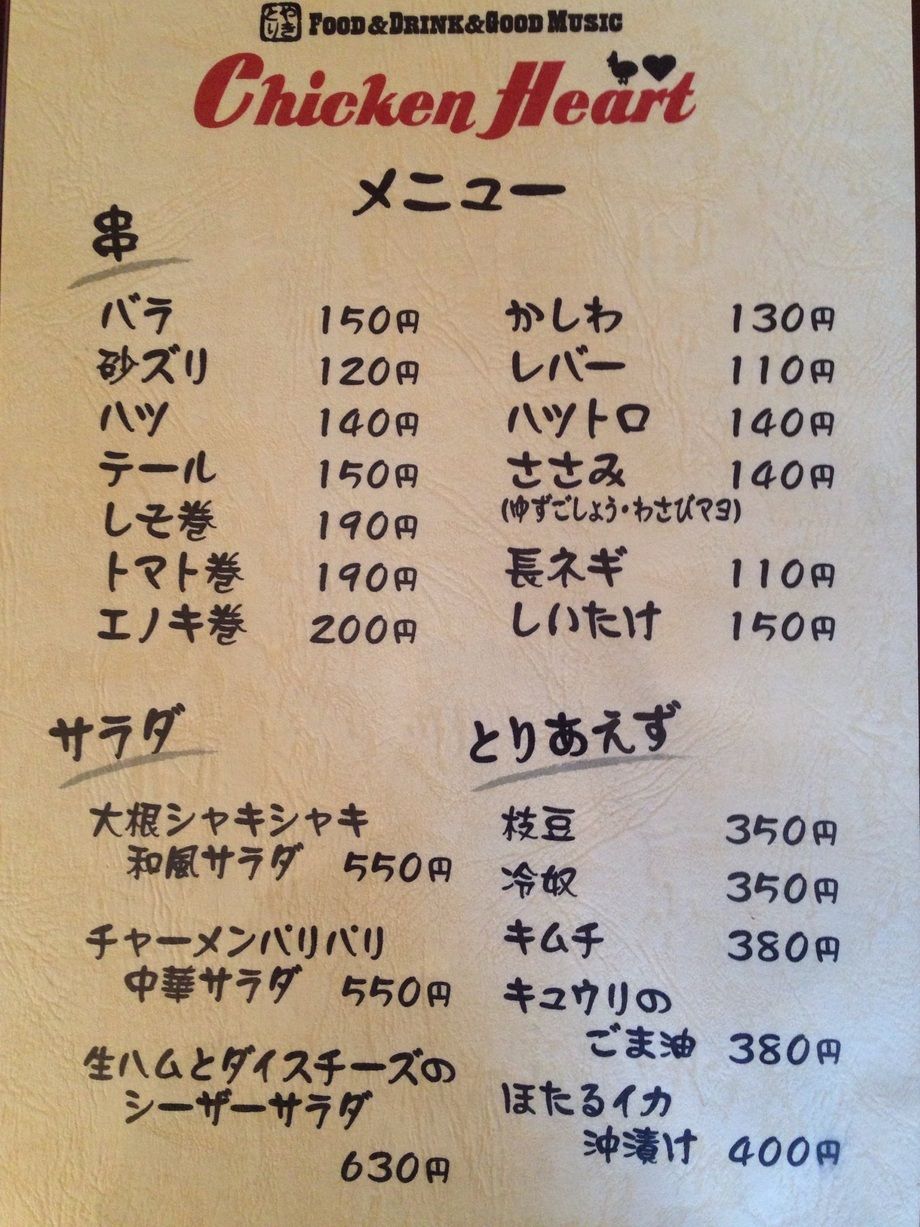 やきとり FOOD&DRINK&GOOD MUSIC
Chicken Heart
メニュー
串
バラ 150円
砂ズリ 120円
ハツ 140円
テール 150円
しそ巻 190円
トマト巻 190円
エノキ巻 200円
かしわ 130円
レバー 110円
ハツトロ 140円
ささみ 140円
(ゆずごしょう・わさびマヨ)
長ネギ 110円
しいたけ 150円
サラダ
大根シャキシャキ
和風サラダ 550円
チャーメンパリパリ
中華サラダ 550円
生ハムとダイスチーズの
シーザーサラダ
630円
とりあえず
枝豆 350円
冷奴 350円
キムチ 380円
キュウリの
ごま油 380円
ほたるイカ
沖漬け 400円